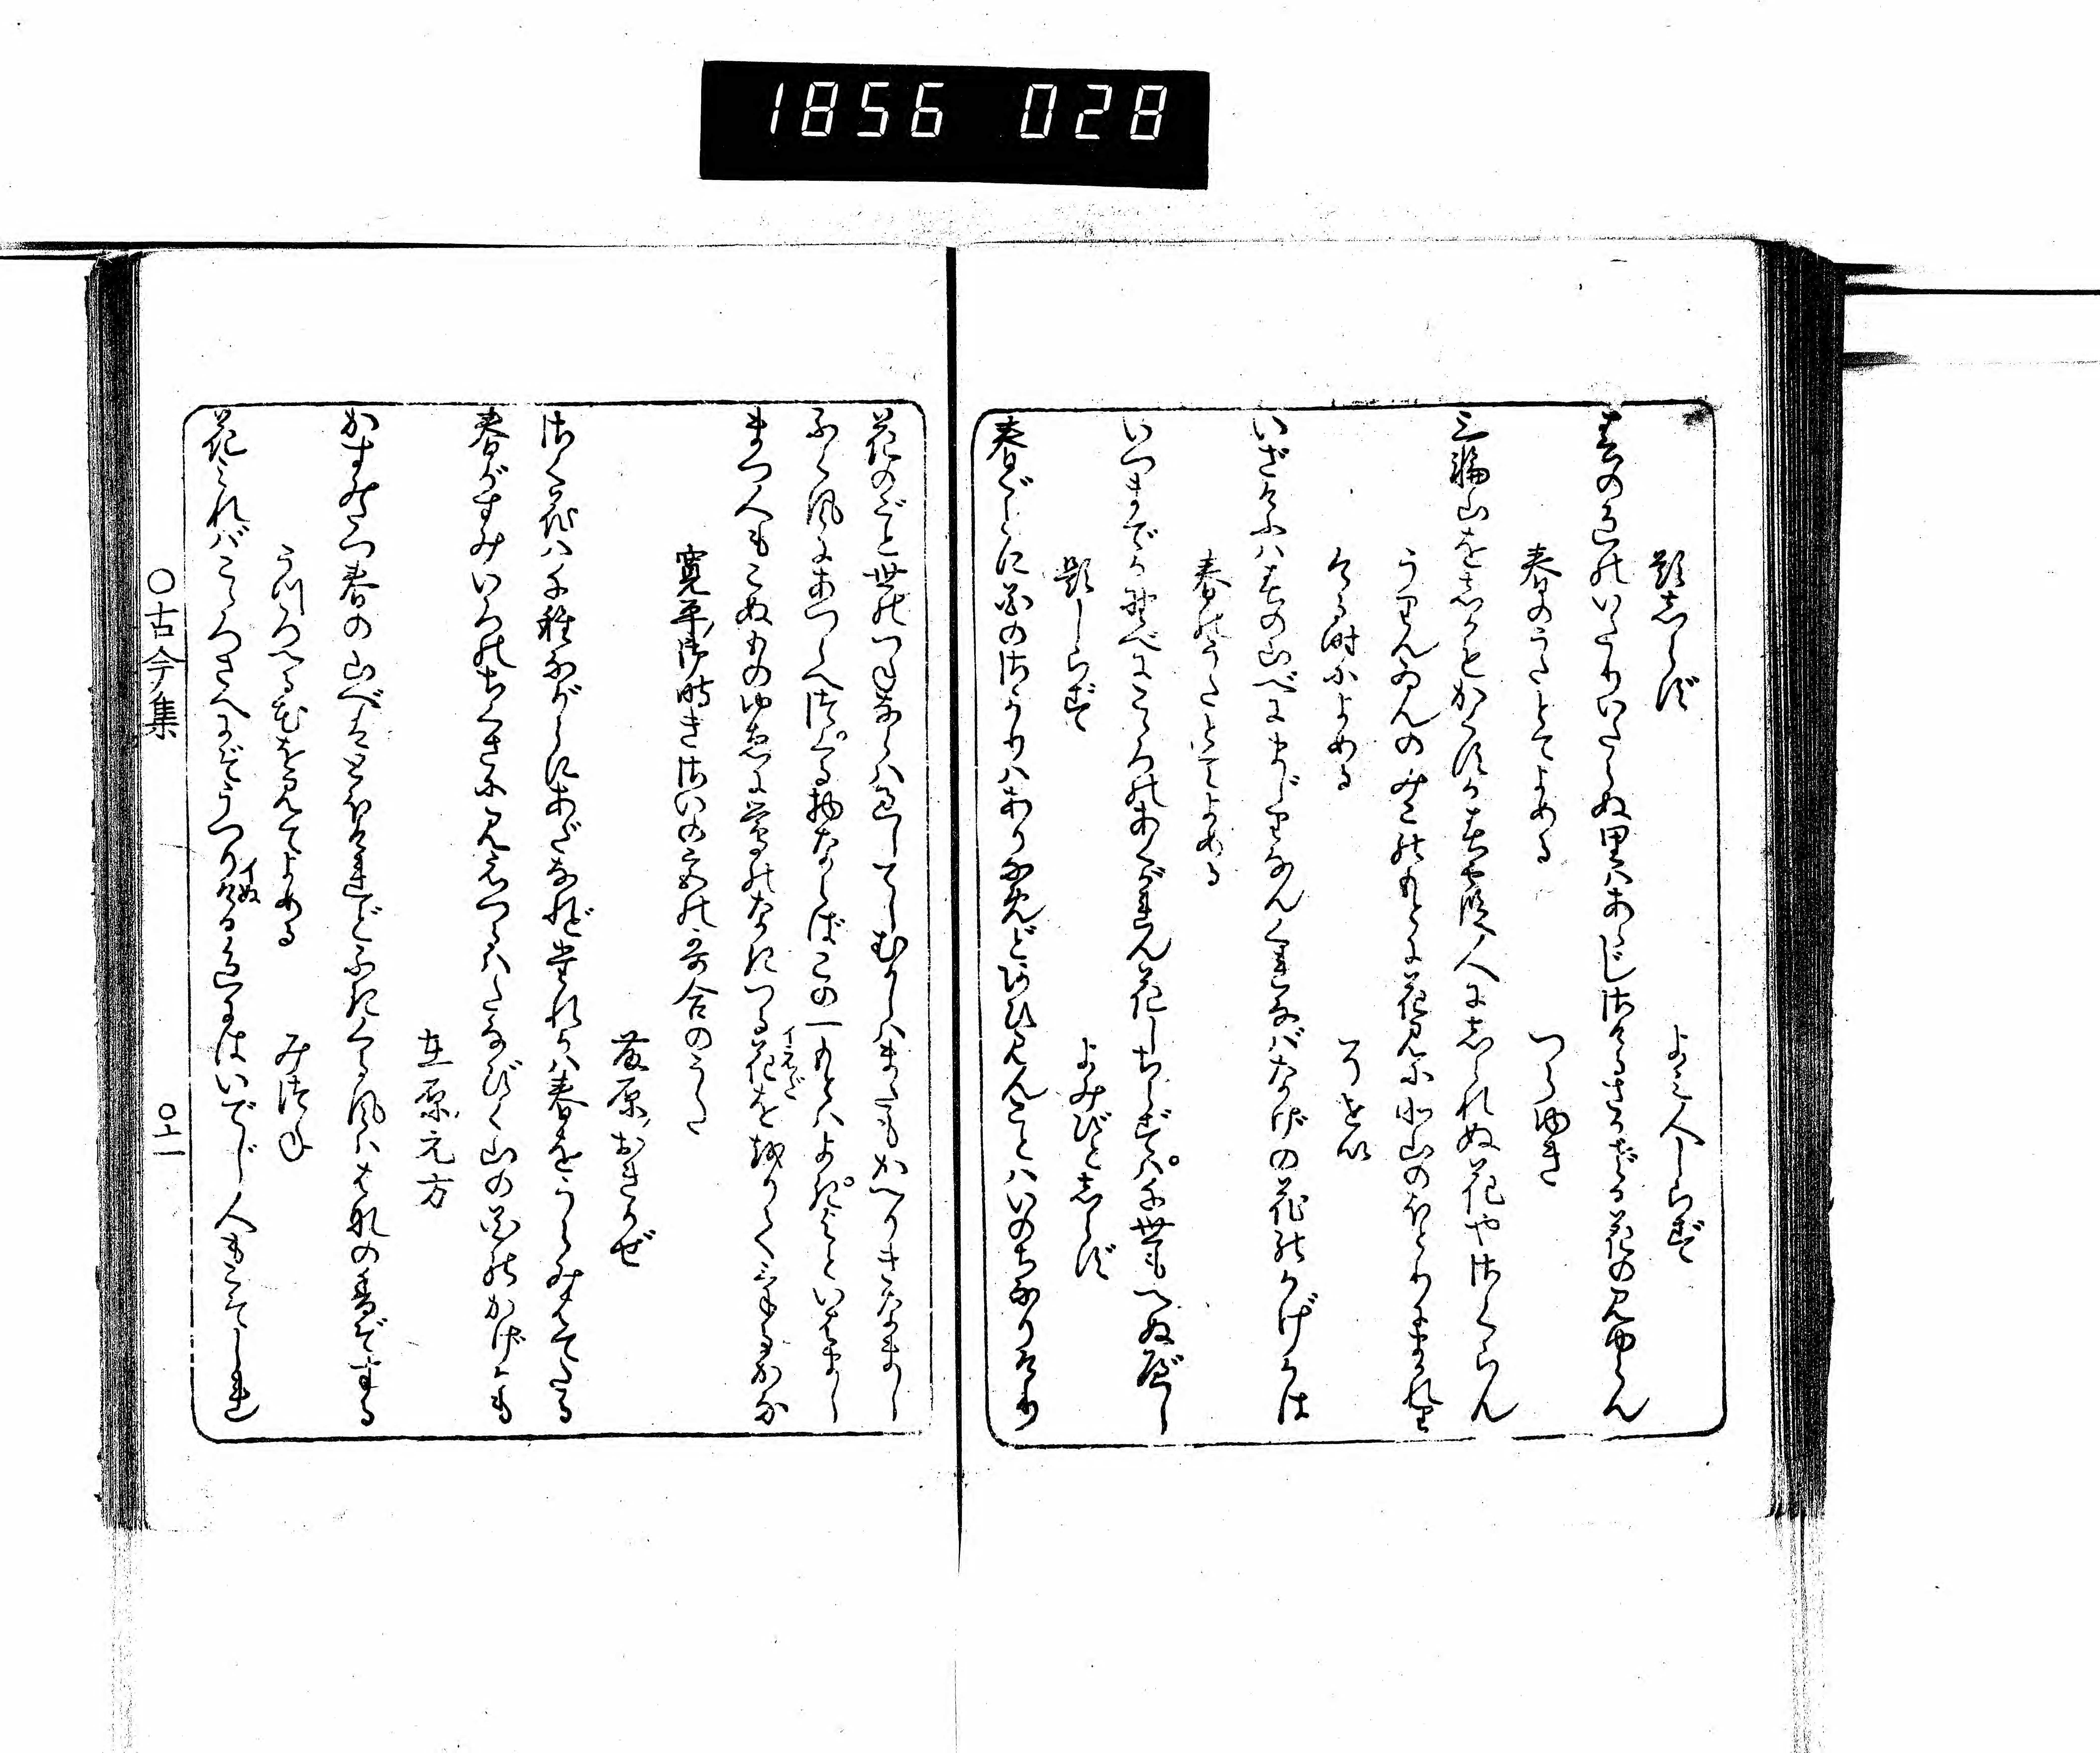 1856 028
題しらず
よみ人しらず
春の色のいたりいたらぬ里はあらじさけるさかざる花の見ゆらん
春のうたとてよめる
つらゆき
三輪山をしかもかくすか春霞人にしられぬ花やさくらん
うりんゐんのみこのもとに花見に北山のほとりにまかれり
ける時によめる
そせい
いざけふは春の山べにまじりなんくれなばなげの花のかげかは
春のうたとてよめる
いつまでか野べにこゝろのあくがれん花しちらずは千世もへぬべし
題しらず
よみびとしらず
春ごとに花のさかりはありなめどあひ見んことはいのちなりけり
花のごと世のつねならば過してしむかしはまたもかへりきなまし
ふく風にあつらへつくる物ならばこの一もとはよきよといはまし
まつ人もこぬものゆゑに鶯のなきつる花をおりてけるかな
イえだ
寛平御時きさいの宮の哥合のうた
藤原おきかぜ
さく花は千種ながらにあだなれど誰かは春をうらみはてたる
春がすみいろのちくさに見えつるはたなびく山の花のかげかも
在原元方
かすみたつ春の山べはとほけれどふきくる風は花の香ぞする
うつろへる花を見てよめる
みつね
花みればこゝろさへにぞうつりける色にはいでじ人もこそしれ
イぬ
○古今集
○上一